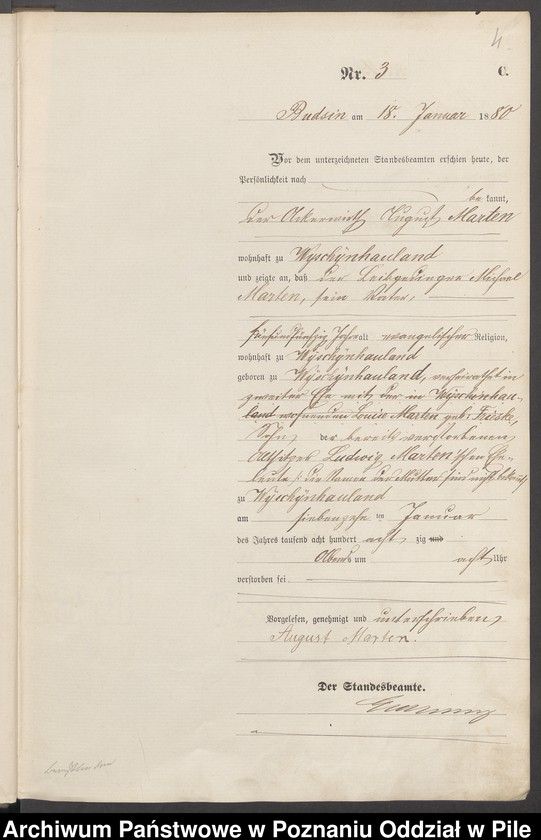 4
Nr. 3
C.
Budsin am 18. Januar 1880
Vor dem unterzeichneten Standesbeamten erschien heute, der
Persönlichkeit nach
be kannt,
der Ackerwirth August Marten
wohnhaft zu Wyschynhauland
und zeigte an, daß der Leibgedinger Michael
Marten, sein Vater,
Jahre alt evangelischer Religion,
wohnhaft zu Wyschynhauland
geboren zu Wyschynhauland, verheirathet in
zweiter Ehe mit der in Wyschinhau-
land wohnenden Louise Marten geb.
Sohn der bereits verstorbenen
Ludwig Marten'schen Ehe-
leute /: die Namen der Mutter sind nicht bekannt
zu Wyschynhauland
am siebenzehn ten Januar
des Jahres tausend acht hundert acht zig und
Abends um acht Uhr
verstorben sei.
Vorgelesen, genehmigt und unterschrieben
August Marten.
Der Standesbeamte.
Archiwum Państwowe w Poznaniu Oddział w Pile